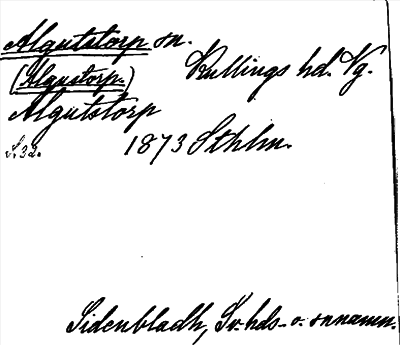 Algutstorp sn.
(Algustorp.) Kullings hd. Vg.
Algutstorp
s. 32. 1873 Sthlm.
Sidenbladh, Sv. hds- o. snnamn.